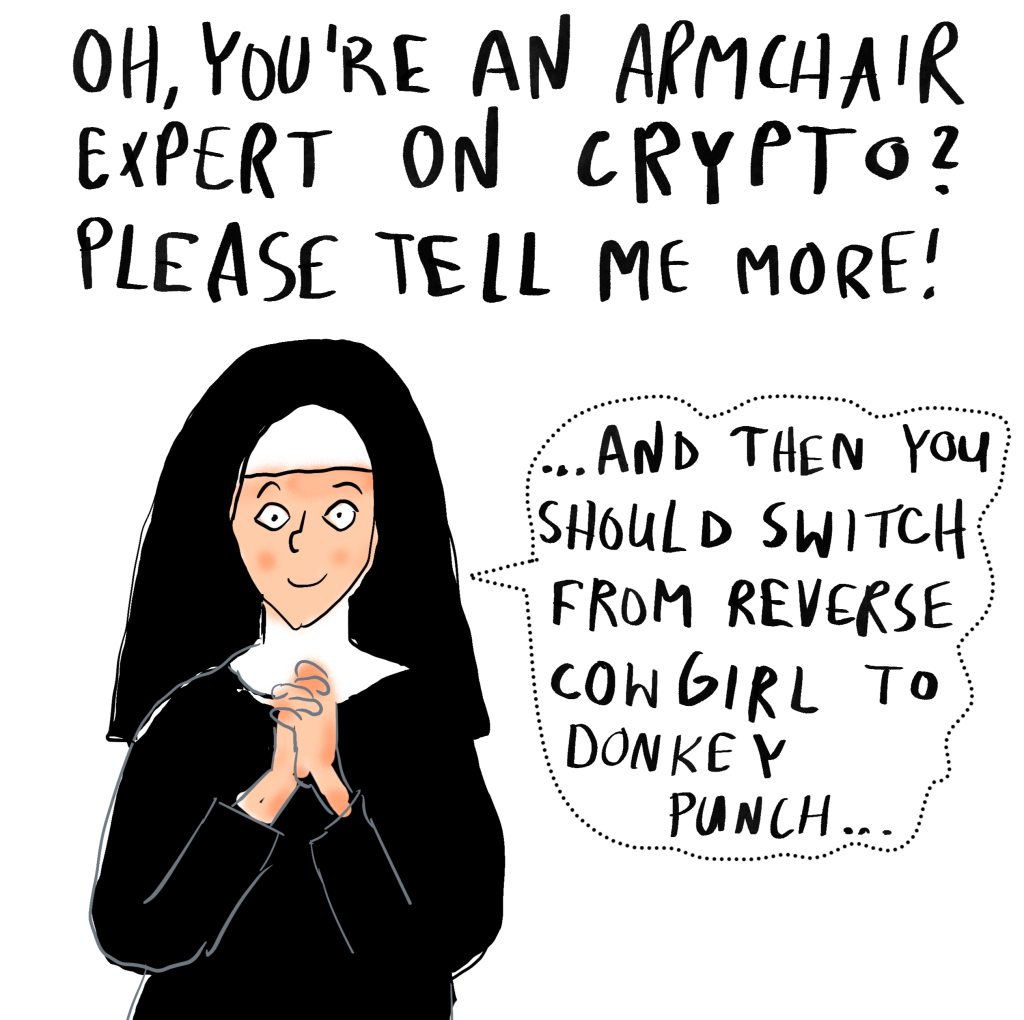 OH, YOU'RE AN ARMCHAIR
EXPERT ON CRYPTO?
PLEASE TELL ME MORE!
...AND THEN YOU
SHOULD SWITCH
FROM REVERSE
COWGIRL TO
DONKEY
PUNCH...